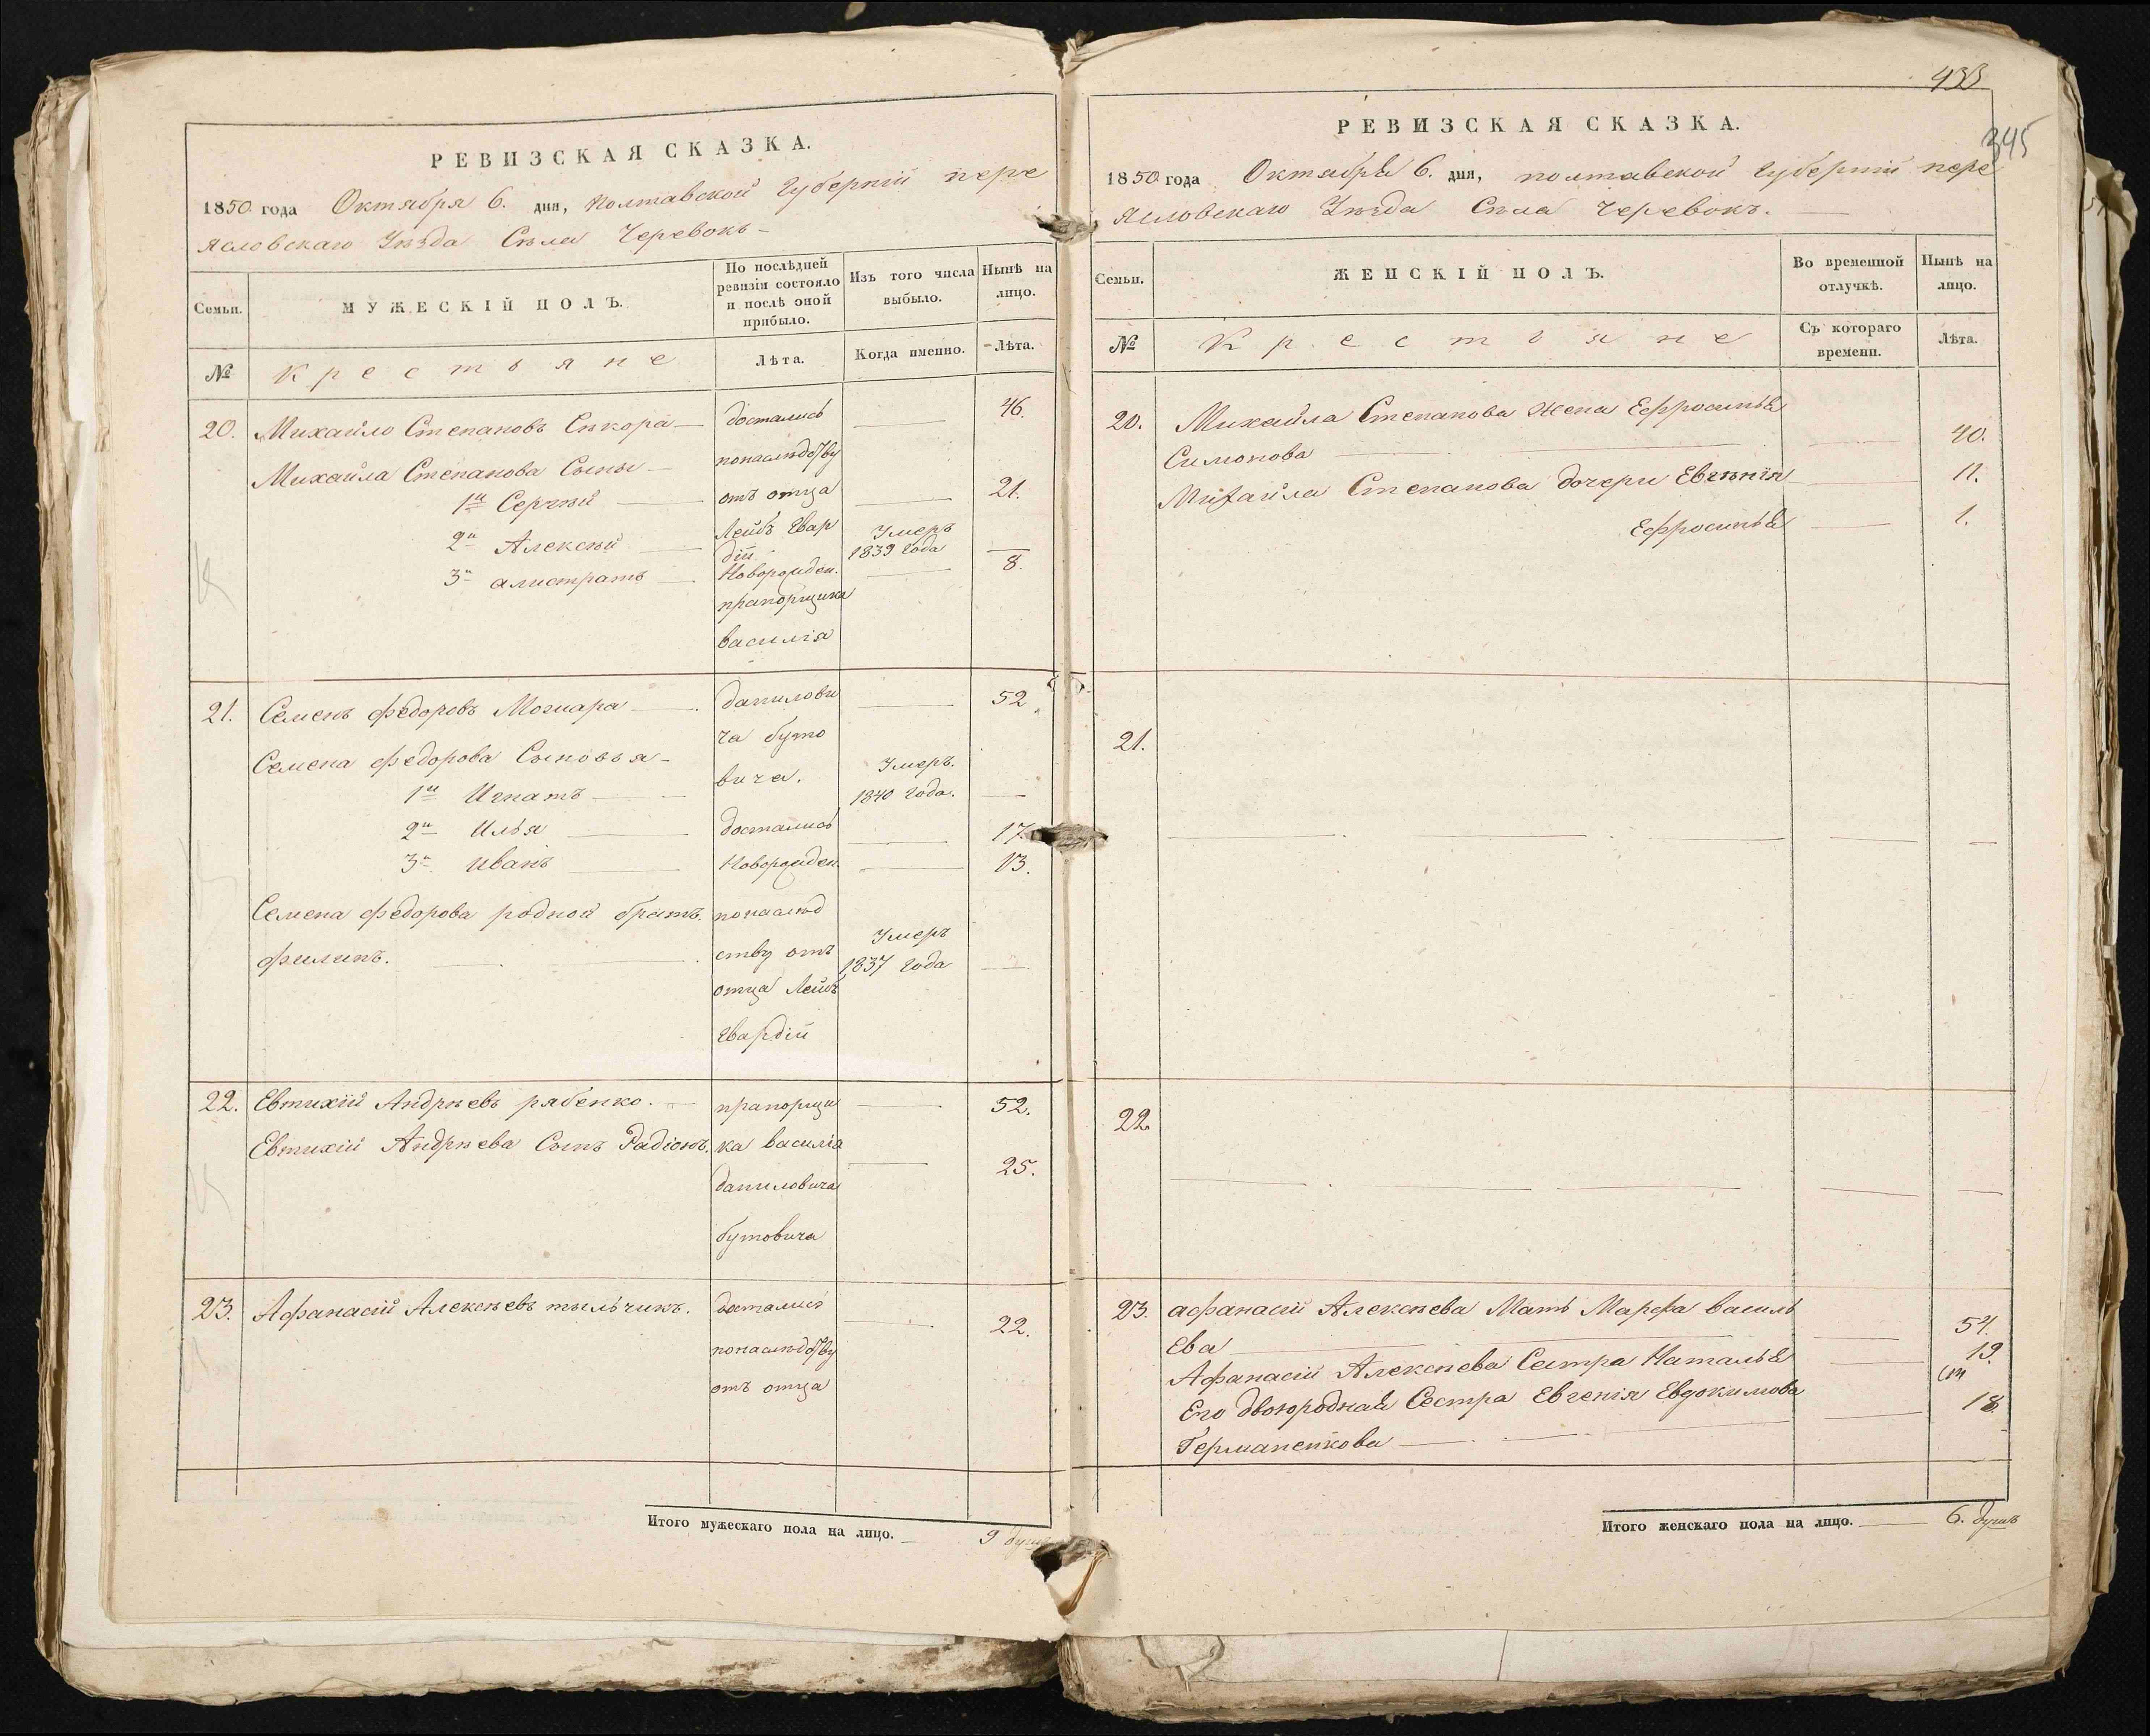 РЕВИЗСКАЯ СКАЗКА.
1850 года Октября 6. дня, Полтавской Губерніи пере
яславскаго Уѣзда Села Черевокъ
Семьи.
МУЖЕСКІЙ ПОЛЪ.
По послѣдней
ревизіи состояло
и послѣ оной
прибыло.
Изъ того числа
выбыло.
Нынѣ на
лицо.
№
Крестьяне
Лѣта.
Когда именно.
Лѣта.
20. Михайло Степановъ Сѣкора достались 46.
Михайла Степанова Сыны понаслѣдству
1й Сергѣй отъ отца 21.
2й Алексѣй Лейбъ Гвар Умеръ
дій 1839 года
3й алистратъ Новорожден. 8.
прапорщика
василія
21. Семенъ Федоровъ Могиара данилови 52
ча буто
Семена Федорова Сыновья вича. Умеръ.
1й Игнатъ 1840 года.
2й Илья достались 17.
3й Иванъ Новорожден. 13.
Семена Федорова родной братъ. понаслѣд
филипъ. ству отъ Умеръ
1837 года
отца Лейбъ
гвардій
22. Евтихій Андрѣевъ рябенко. прапорщи 52.
Евтихій Андрѣева Сынъ Радіонъ. ка василія 25.
даниловича
бутовича
23. Афанасій Алексѣевъ тыльчикъ. достались 22.
понаслѣдству
отъ отца
Итого мужескаго пола на лицо. 9 душъ
433
345
РЕВИЗСКАЯ СКАЗКА.
1850 года Октября 6. дня, полтавской Губерніи пере
яславскаго Уѣзда Села Черевокъ.
Семьи.
ЖЕНСКІЙ ПОЛЪ.
Во временной
отлучкѣ.
Нынѣ на
лицо.
№
Крестьяне
Съ котораго
времени.
Лѣта.
20. Михайла Степанова жена Ефросинья
Симонова 40.
Михайла Степанова дочери Евгенія 11.
Ефросинья 1.
21.
22.
23. афанасій Алексѣева Мать Марфа василь
Ева 54.
Афанасій Алексѣева Сестра Наталья 19.
Его двоюродная Сестра Евгенія Евдокимова 18.
Германенкова
Итого женскаго пола на лицо. 6. душъ